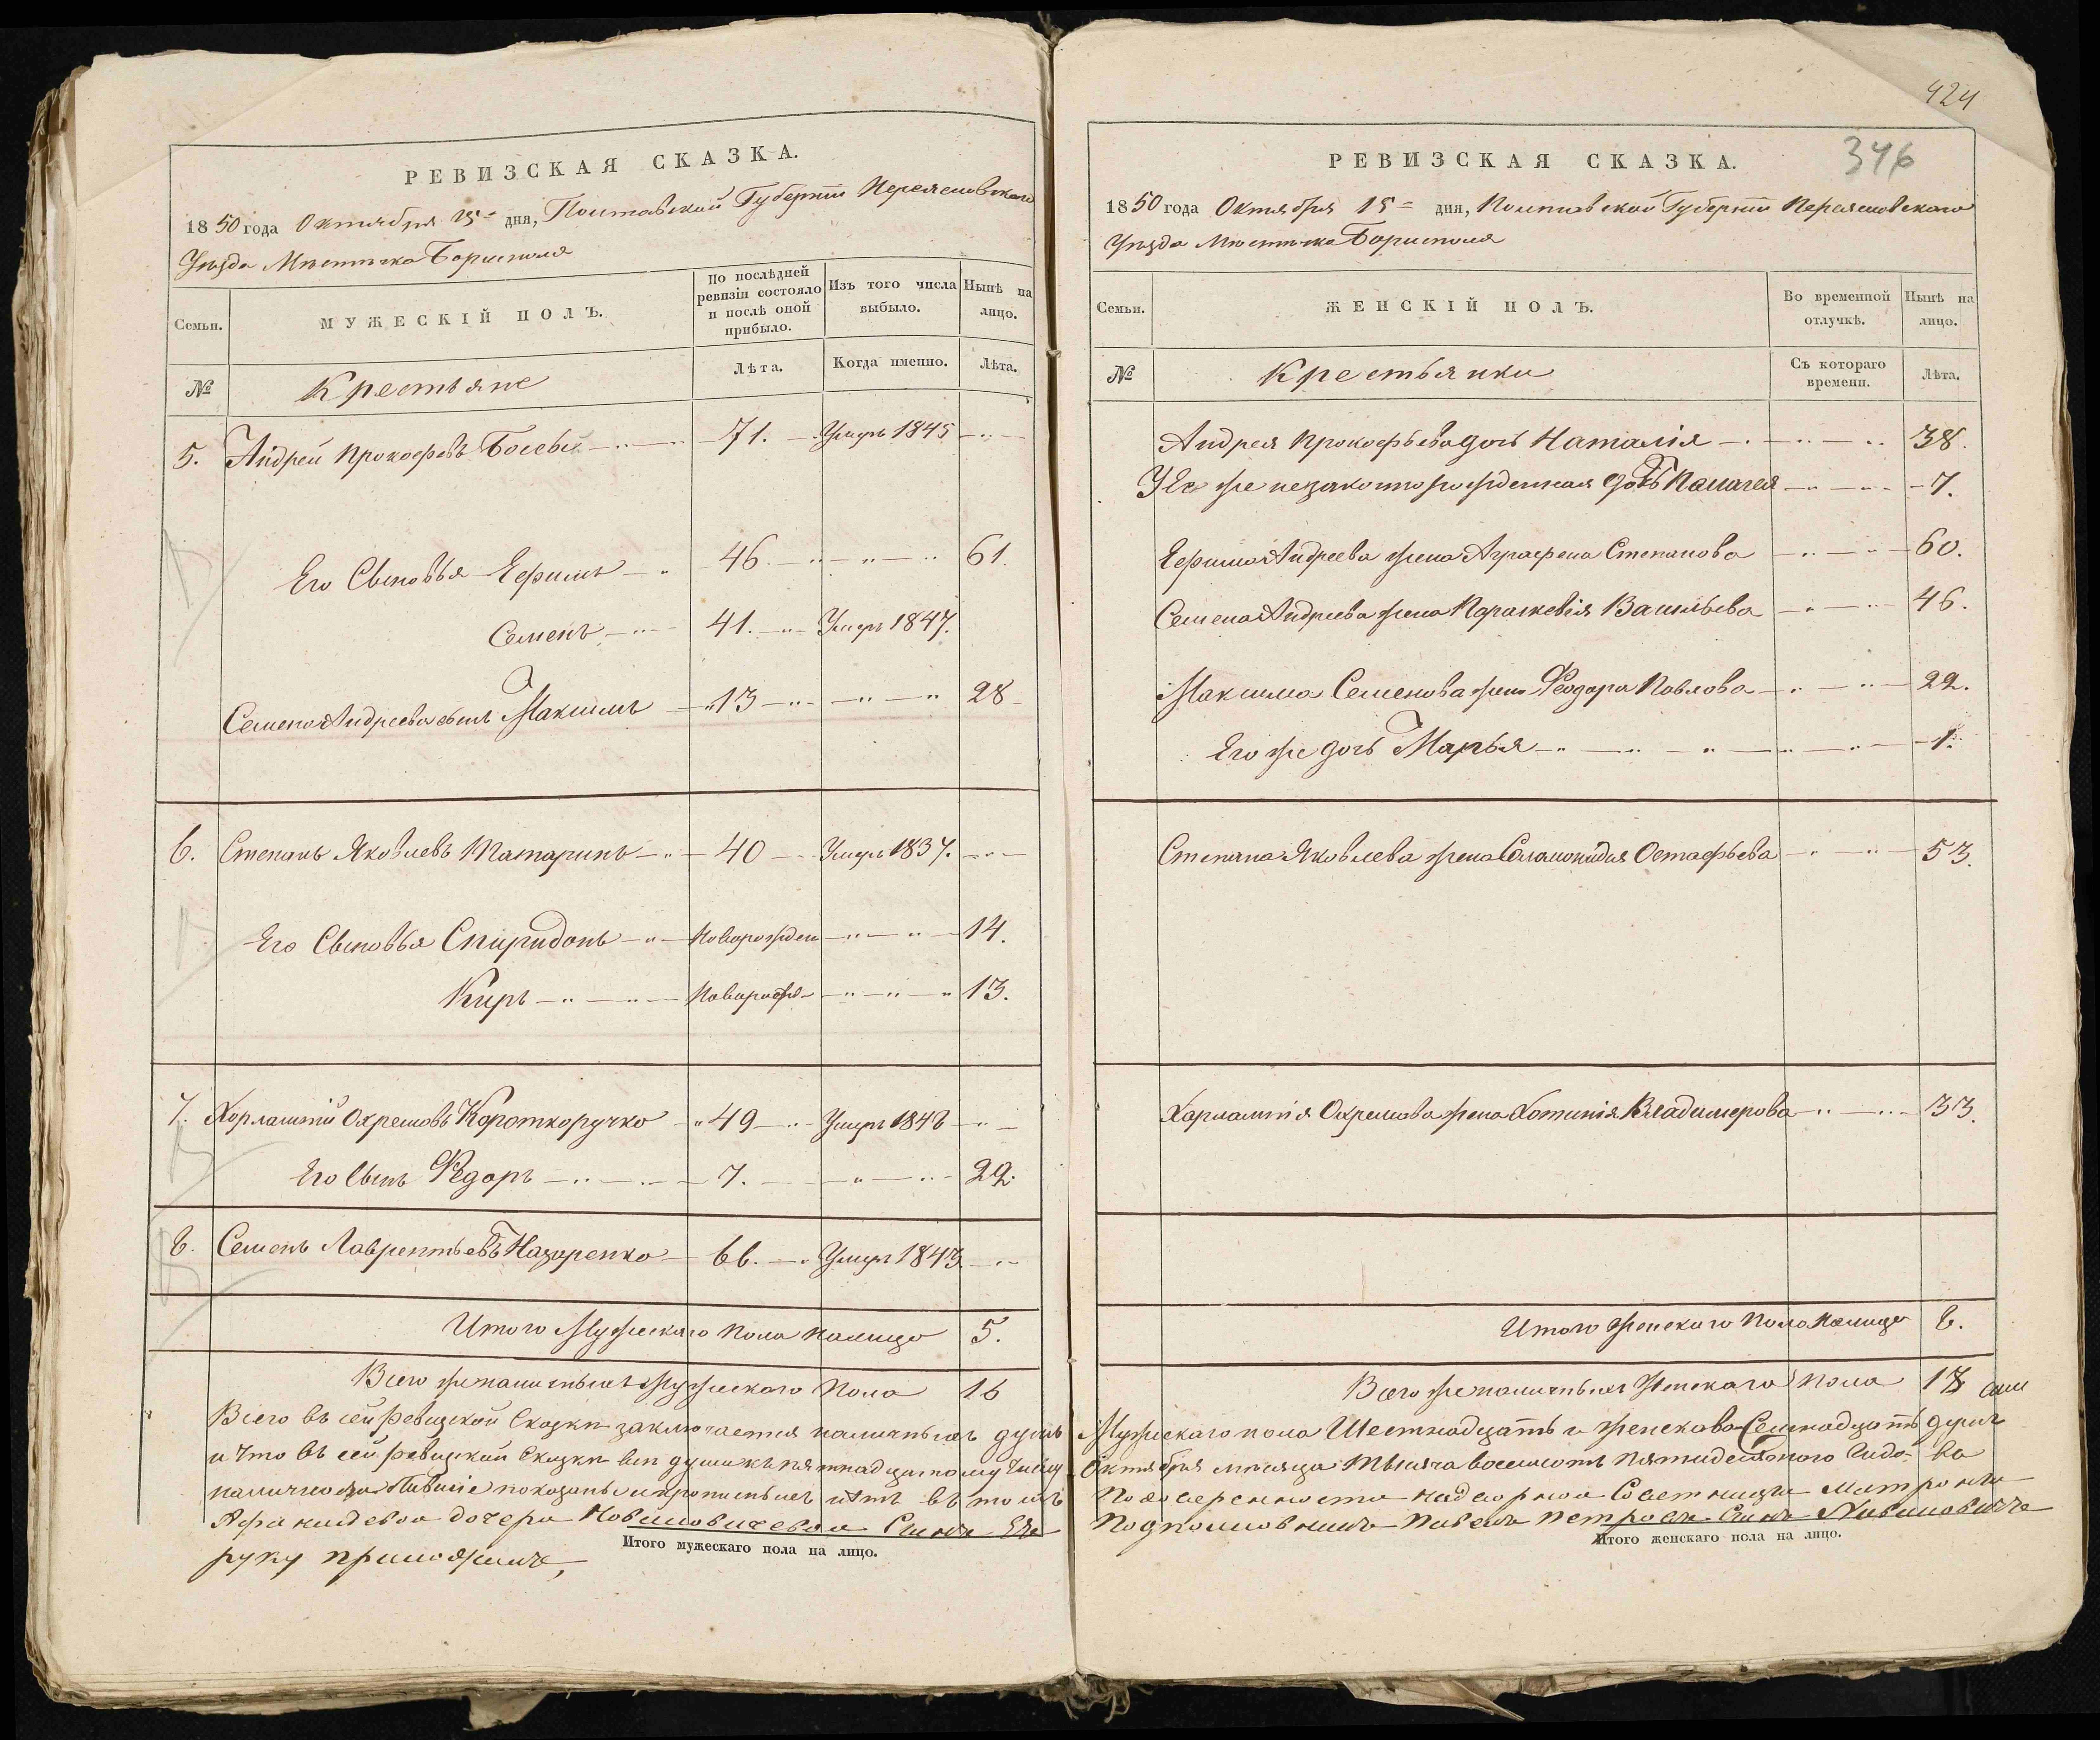 РЕВИЗСКАЯ СКАЗКА.
1850 года Октября 15 дня, Полтавской Губерніи Переяславского
Уезда Местечка Борисполя
Семьи.
МУЖЕСКІЙ ПОЛЪ.
По послѣдней ревизіи состояло и послѣ оной прибыло.
Изъ того числа выбыло.
Нынѣ на лицо.
№
Крестьяне
Лѣта.
Когда именно.
Лѣта.
5. Андрей Прокофьевъ 71. Умеръ 1845
Его Сыновья Ефимъ 46 61.
Семенъ 41. Умеръ 1847.
Семена Андреева сынъ Максимъ 13 28
6. Степанъ Яковлевъ Татаринъ 40 Умеръ 1837.
Его Сыновья Спиридонъ Новорожден 14.
Киръ Новорожд 13.
7. Харлампій Охремовъ Короткоручко 49 Умеръ 1848
Его Сынъ Федоръ 7. 22.
8. Семенъ Лаврентьевъ Назаренко 66. Умеръ 1843
Итого Мужескаго Пола налицо 5.
Всего же наличныхъ Мужескаго Пола 16
Всего въ сей Ревизской Сказке заключается наличныхъ душъ
и что въ сей Ревизской Сказке все души къ пятнадцатому числу
наличное показаны и прописныхъ нетъ въ томъ
дочери Сынъ Ея
руку приложилъ,
Итого мужескаго пола на лицо.
424
346
РЕВИЗСКАЯ СКАЗКА.
1850 года Октября 15 дня, Полтавской Губерніи Переяславского
Уезда Местечка Борисполя
Семьи.
ЖЕНСКІЙ ПОЛЪ.
Во временной отлучкѣ.
Нынѣ на лицо.
№
Крестьянки
Съ котораго времени.
Лѣта.
Андрея Прокофьева дочь Наталія 38.
У Ее же незаконнорожденная дочь Палагея 7.
Ефима Андреева жена Аграфена Степанова 60.
Семена Андреева жена Параскевія Васильева 46.
Максима Семенова жена Феодора Павлова 22.
Его же дочь Марья 1.
Степана Яковлева жена Саламонидия Остафьева 53.
Харлампія Охремова жена Хотинія Владимерова 33.
Итого женскаго Пола налицо 8.
Всего же наличныхъ Женскаго Пола 18
Мужескаго пола Шестнадцать и женскаго Семнадцать душъ
Октября месяца Тысяча восемьсотъ пятидесятого
По доверенности надворной Советницы Матроны
Подполковникъ Павелъ Петровъ Сынъ
Итого женскаго пола на лицо.